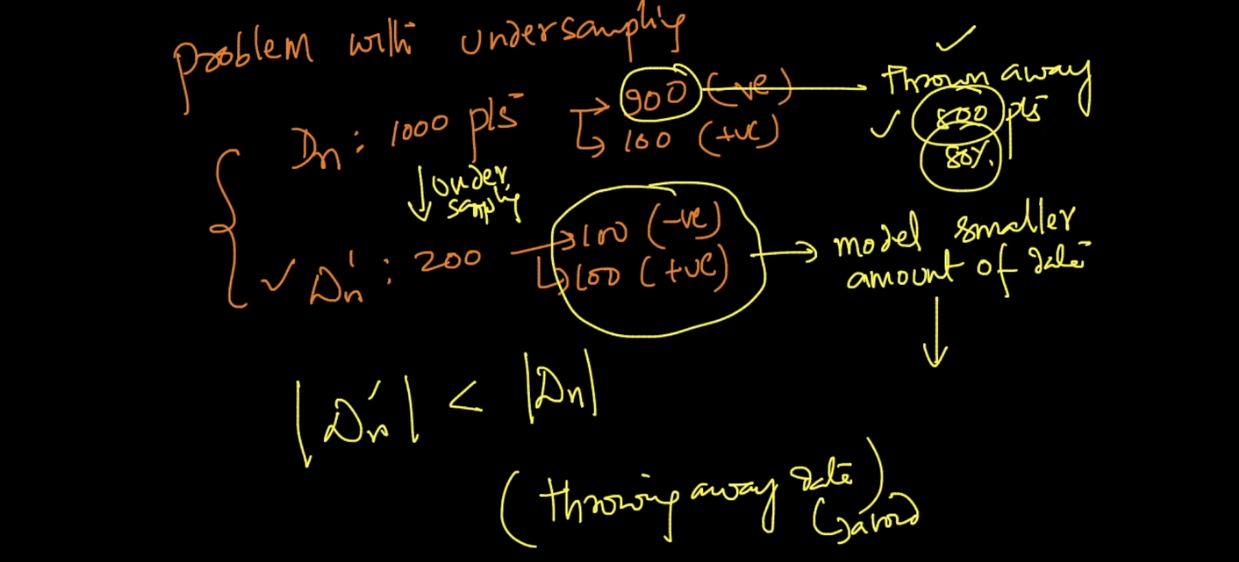 problem with undersampling
Dn : 1000 pts → 900 (-ve) → Thrown away
↳ 100 (+ve) ✓ 800 pts
80%.
↓ under
sampling
✓ Dn' : 200 → 100 (-ve) → model smaller
↳ 100 (+ve) amount of data
|Dn'| < |Dn|
(throwing away data)
↳ avoid